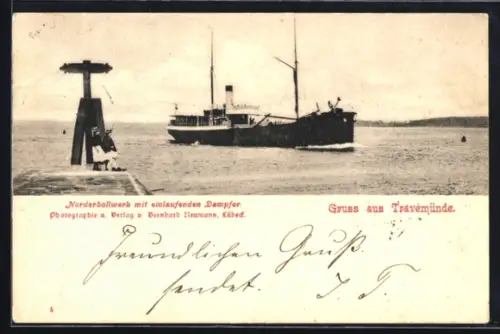 Norderbollwerk mit einlaufenden Dampfer
Photographie u. Verlag v. Bernhard Neumann, Lübeck.
Gruss aus Travemünde.
Freundlichen Gruß
sendet. J. F.
5